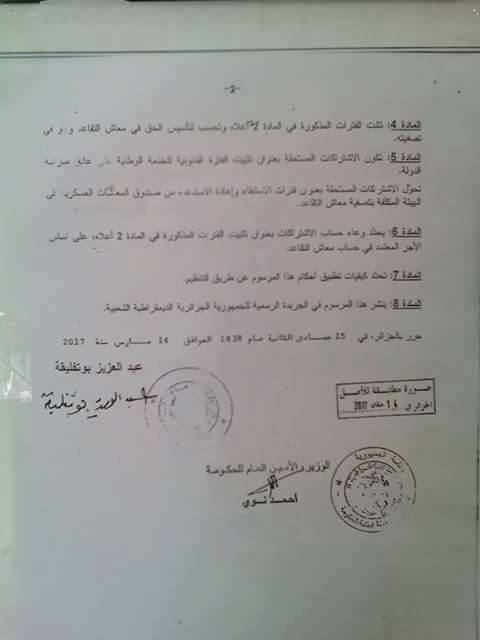 -2-
المادة 4: تثبت الفترات المذكورة في المادة 2 أعلاه وتحسب لتأسيس الحق في معاش التقاعد و/أو في
تصفيته.
المادة 5: تكون الاشتراكات المستحقة بعنوان تثبيت الفترة القانونية للخدمة الوطنية على عاتق
الدولة.
تحول الاشتراكات المستحقة بعنوان فترات الاستبقاء وإعادة الاستدعاء من صندوق المعاشات العسكرية إلى
الهيئة المكلفة بتصفية معاش التقاعد.
المادة 6: يحدد وعاء حساب الاشتراكات بعنوان تثبيت الفترات المذكورة في المادة 2 أعلاه، على أساس
الأجر المعتمد في حساب معاش التقاعد.
المادة 7: تحدد كيفيات تطبيق أحكام هذا المرسوم عن طريق التنظيم.
المادة 8: ينشر هذا المرسوم في الجريدة الرسمية للجمهورية الجزائرية الديمقراطية الشعبية.
حرر بالجزائر، في 15 جمادى الثانية عام 1438 الموافق 14 مارس سنة 2017
عبد العزيز بوتفليقة
عبد العزيز بوتفليقة
صورة مطابقة للأصل
الجزائر في 14 مارس 2017
الوزير والأمين العام للحكومة
أحمد نوي